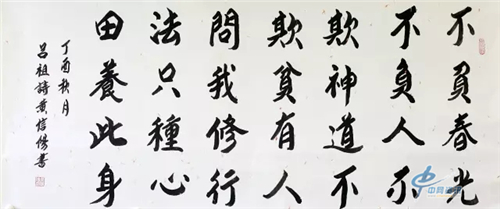 不負春光
不負人不
欺神道不
欺貧有人
問我修行
法只種心
田養此身
丁酉秋月
吕祖詩黄信陽書